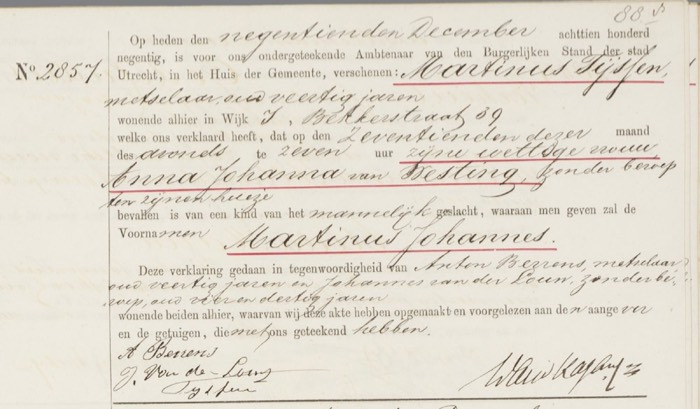 88 v
Op heden den negentienden December achttien honderd
negentig, is voor ons ondergeteekende Ambtenaar van den Burgerlijken Stand der stad
No. 2857. Utrecht, in het Huis der Gemeente, verschenen: Martinus Tijssen,
metselaar, oud veertig jaren
wonende alhier in Wijk I, Bekkerstraat 39
welke ons verklaard heeft, dat op den Zeventienden dezer maand
des avonds te zeven uur zijne wettige vrouw
Anna Johanna van Hesting, zonder beroep
ten zijnen huize
bevallen is van een kind van het mannelijk geslacht, waaraan men geven zal de
Voornamen Martinus Johannes.
Deze verklaring gedaan in tegenwoordigheid van Anton Berrens, metselaar
oud veertig jaren en Johannes van der Loun, zonder be-
roep, oud vier en dertig jaren
wonende beiden alhier, waarvan wij deze akte hebben opgemaakt en voorgelezen aan den aangever
en de getuigen, die met ons geteekend hebben.
A Berrens
J. Van de
Tijssen